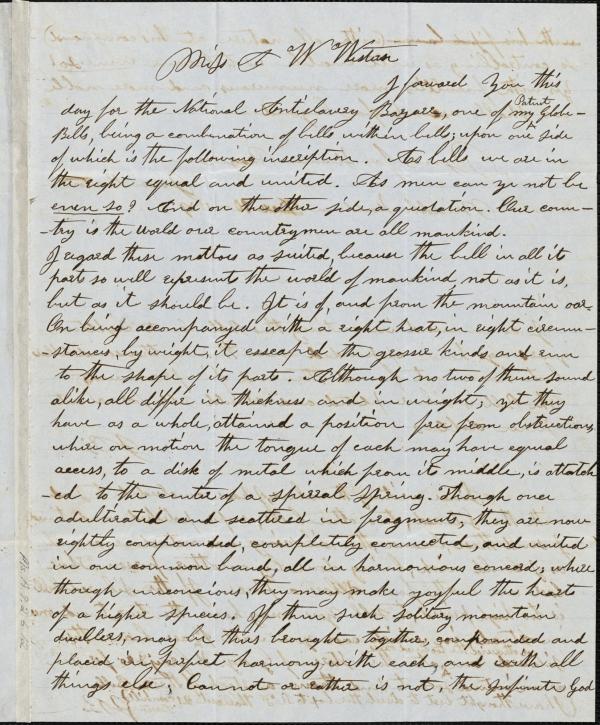 Miss A W Weston
I forward you this
day for the National Antislavery Bazare, one of my Patent Globe-
Bells, being a combination of bells within bells; upon one side
of which is the following inscription. As bells we are in
the right equal and united. As men can ye not be
even so? And on the other side, a quotation. Our coun-
-try is the world our countrymen are all mankind.
I regard these mottoes as suited, because the bell in all it
parts so well represents the world of mankind, not as it is,
but as it should be. It is of, and from the mountain oar.
On being accompanyed with a right heat, in right circum-
-stances, by weight, it esscaped the grosser kinds and run
to the shape of its parts. Although no two of them sound
alike, all differ in thickness and in weight; yet they
have as a whole, attained a position free from obstructions,
when on motion the tongue of each may have equal
access, to a disk of metal which from its middle, is attatch
-ed to the center of a spirral spring. Though once
adultirated and scattered in fragments, they are now
rightly compounded, completely connected, and united
in one common band, all in harmonious concord; where
though unconcious, they may make joyful the hearts
of a higher species. If then such solitary mountain
dwellers, may be thus brought together, compounded and
placed in perfect harmony with each, and with all
things else; Cannot or rather is not, the Infinite God